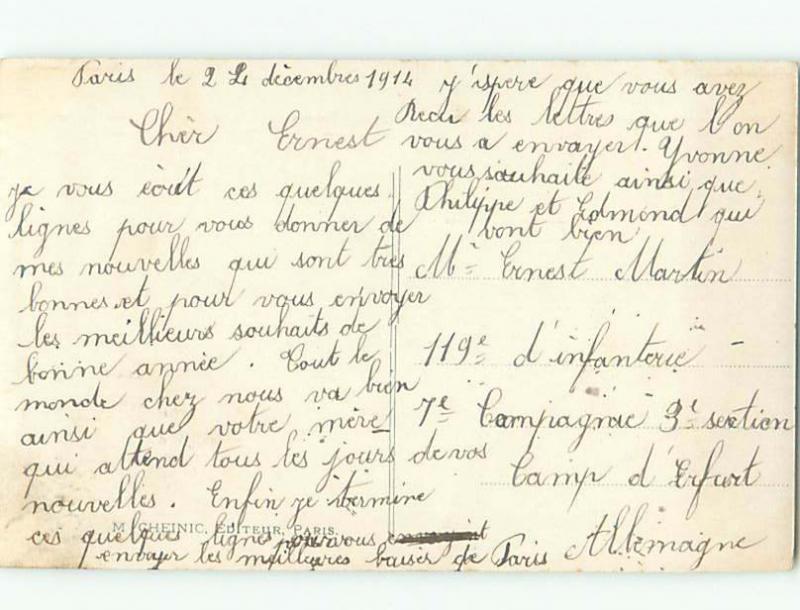 Paris le 24 décembres 1914
Chèr Ernest
je vous écrit ces quelques
lignes pour vous donner de
mes nouvelles qui sont très
bonnes et pour vous envoyer
les meillieurs souhaits de
bonne année. Tout le
monde chez nous va bien
ainsi que votre mère
qui attend tous les jours de vos
nouvelles. Enfin je termine
ces quelques lignes pour vous
envoyer les meilleures baiser de Paris
j'ispere que vous avez
Recu les lettres que l'on
vous a envoyer. Yvonne
vous souhaite ainsi que
Philippe et Edmond qui
vont bien
Mr Ernest Martin
119e d'infanterie
7e Compagnie 3e section
Camp d'Erfurt
Allemagne
M. CHEINIC, EDITEUR, PARIS.